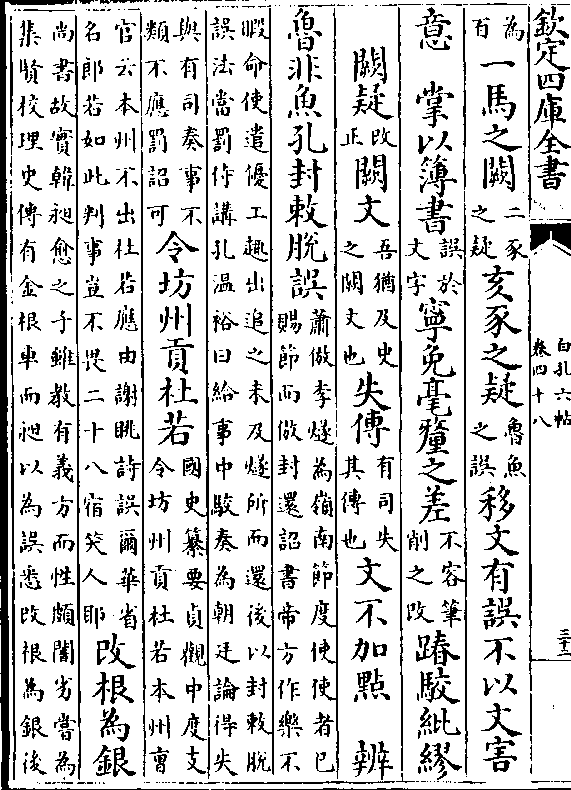 欽定四庫全書
白孔六帖
卷四十八
為
百
一馬之闕
二豕
之疑
亥豕之疑
魯魚
之誤
移文有誤不以文害
意　掌以簿書
誤於
文字
寧免毫釐之差
不容筆
削之改
踳駮紕繆
闕疑
改
正
闕文
吾猶及史
之闕文也
失傳
有司失
其傳也
文不加點　辨
魯非魚孔封敕脫誤
蕭倣李燧為嶺南節度使使者已
賜節而倣封還詔書帝方作樂不
暇命使遣優工趣出追之未及燧所而還後以封敕脫
誤法當罰侍講孔溫裕曰給事中駮奏為朝廷論得失
與有司奏事不
類不應罰詔可
令坊州貢杜若
國史纂要貞觀中度支
令坊州貢杜若本州曹
官云本州不出杜若應由謝眺詩誤爾華省
名郎若如此判事豈不畏二十八宿笑人耶
改根為銀
尚書故實韓昶愈之子雖教有義方而性頗闇劣嘗為
集賢校理史傳有金根車而昶以為誤悉改根為銀後